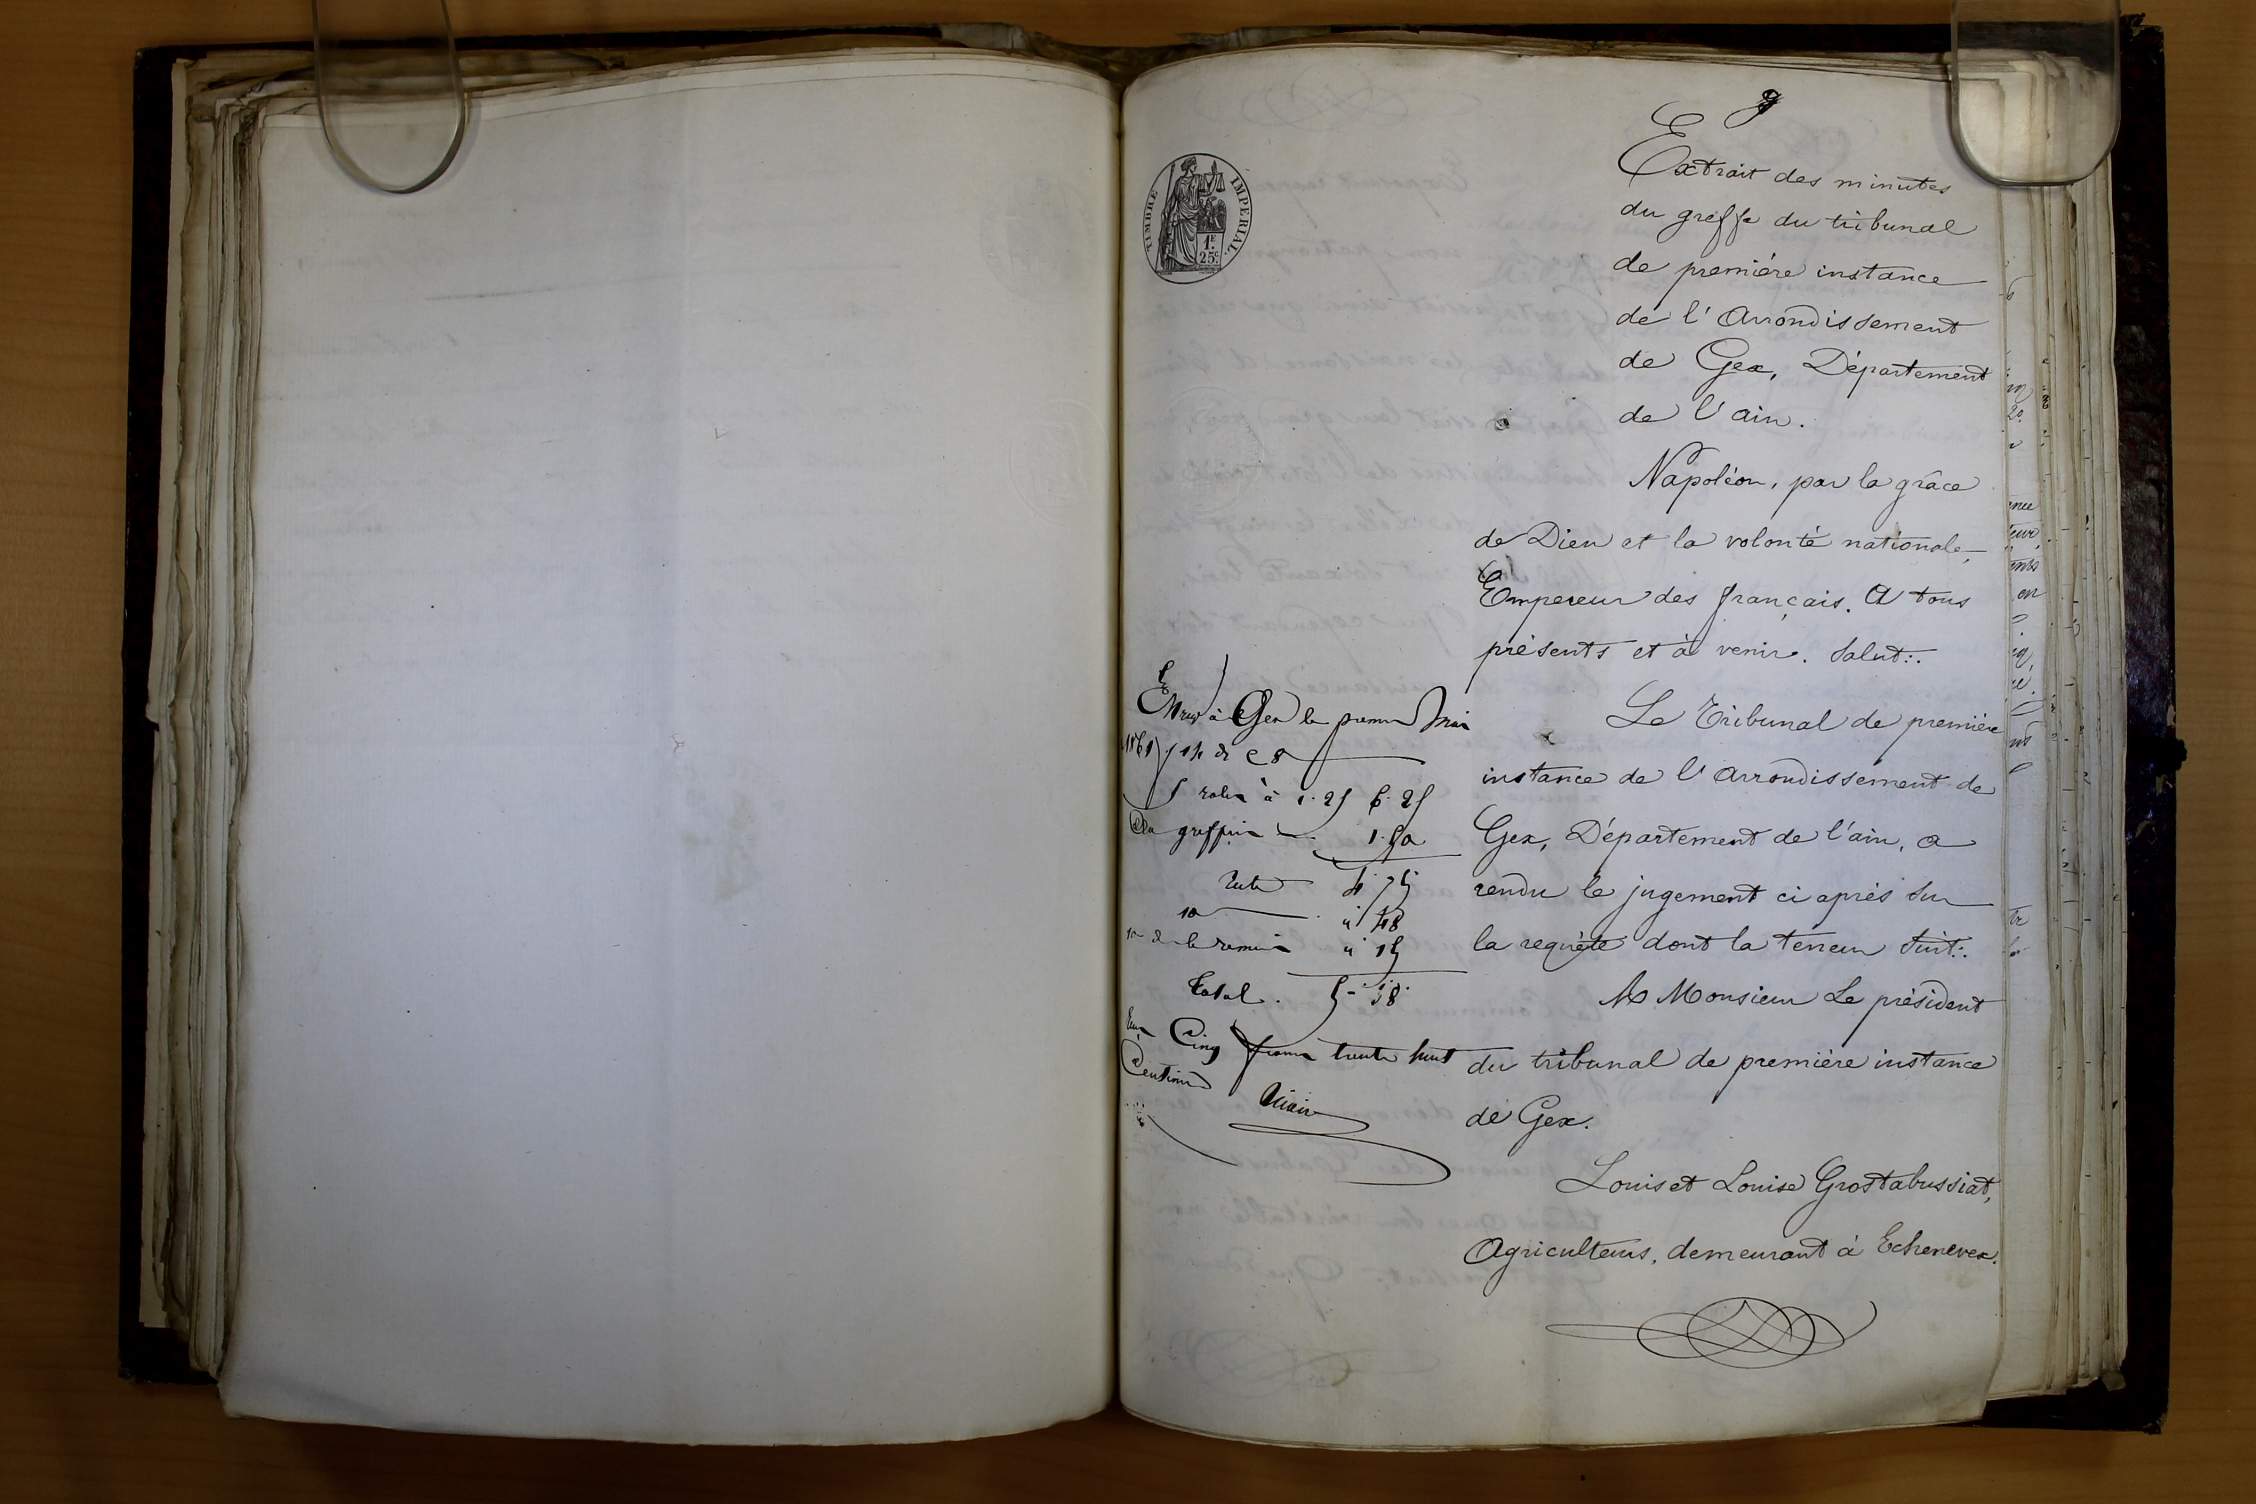 9
Extrait des minutes
du greffe du tribunal
de première instance
de l'Arrondissement
de Gex, Département
de l'ain.
TIMBRE IMPERIAL.
1F.
25c.
Napoléon, par la grâce
de Dieu et la volonté nationale,
Empereur des français. A tous
présents et à venir. Salut:.
Le Tribunal de première
instance de l'Arrondissement de
Gex, Département de l'ain, a
rendu le jugement ci après sur
la requête dont la teneur suit:.
A Monsieur Le président
du tribunal de première instance
de Gex.
Louis et Louise Grostabussiat,
Agriculteurs, demeurant à Echenevex.
à Gex le premier Mai
à 1.25 6.25
greffier 1.50
Reste 4.75
10 " 48
la remise " 15
Total. 5-38
Cinq francs trente huit
Centimes